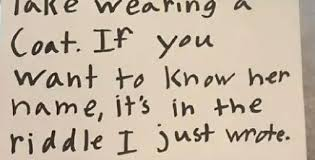 lake wearing a
Coat. If you
want to know her
name, it's in the
riddle I just wrote.